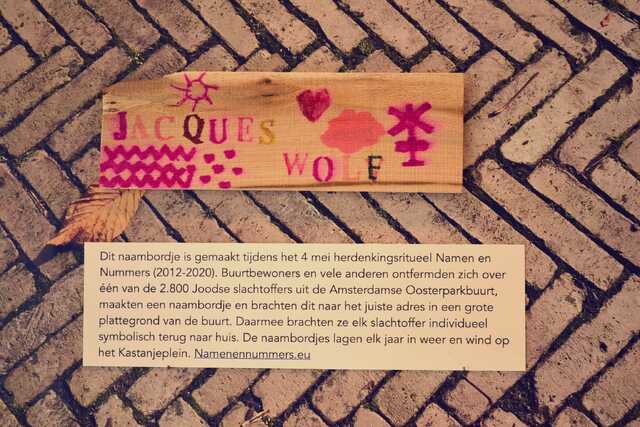 JACQUES
WOLF
Dit naambordje is gemaakt tijdens het 4 mei herdenkingsritueel Namen en
Nummers (2012-2020). Buurtbewoners en vele anderen ontfermden zich over
één van de 2.800 Joodse slachtoffers uit de Amsterdamse Oosterparkbuurt,
maakten een naambordje en brachten dit naar het juiste adres in een grote
plattegrond van de buurt. Daarmee brachten ze elk slachtoffer individueel
symbolisch terug naar huis. De naambordjes lagen elk jaar in weer en wind op
het Kastanjeplein. Namenennummers.eu